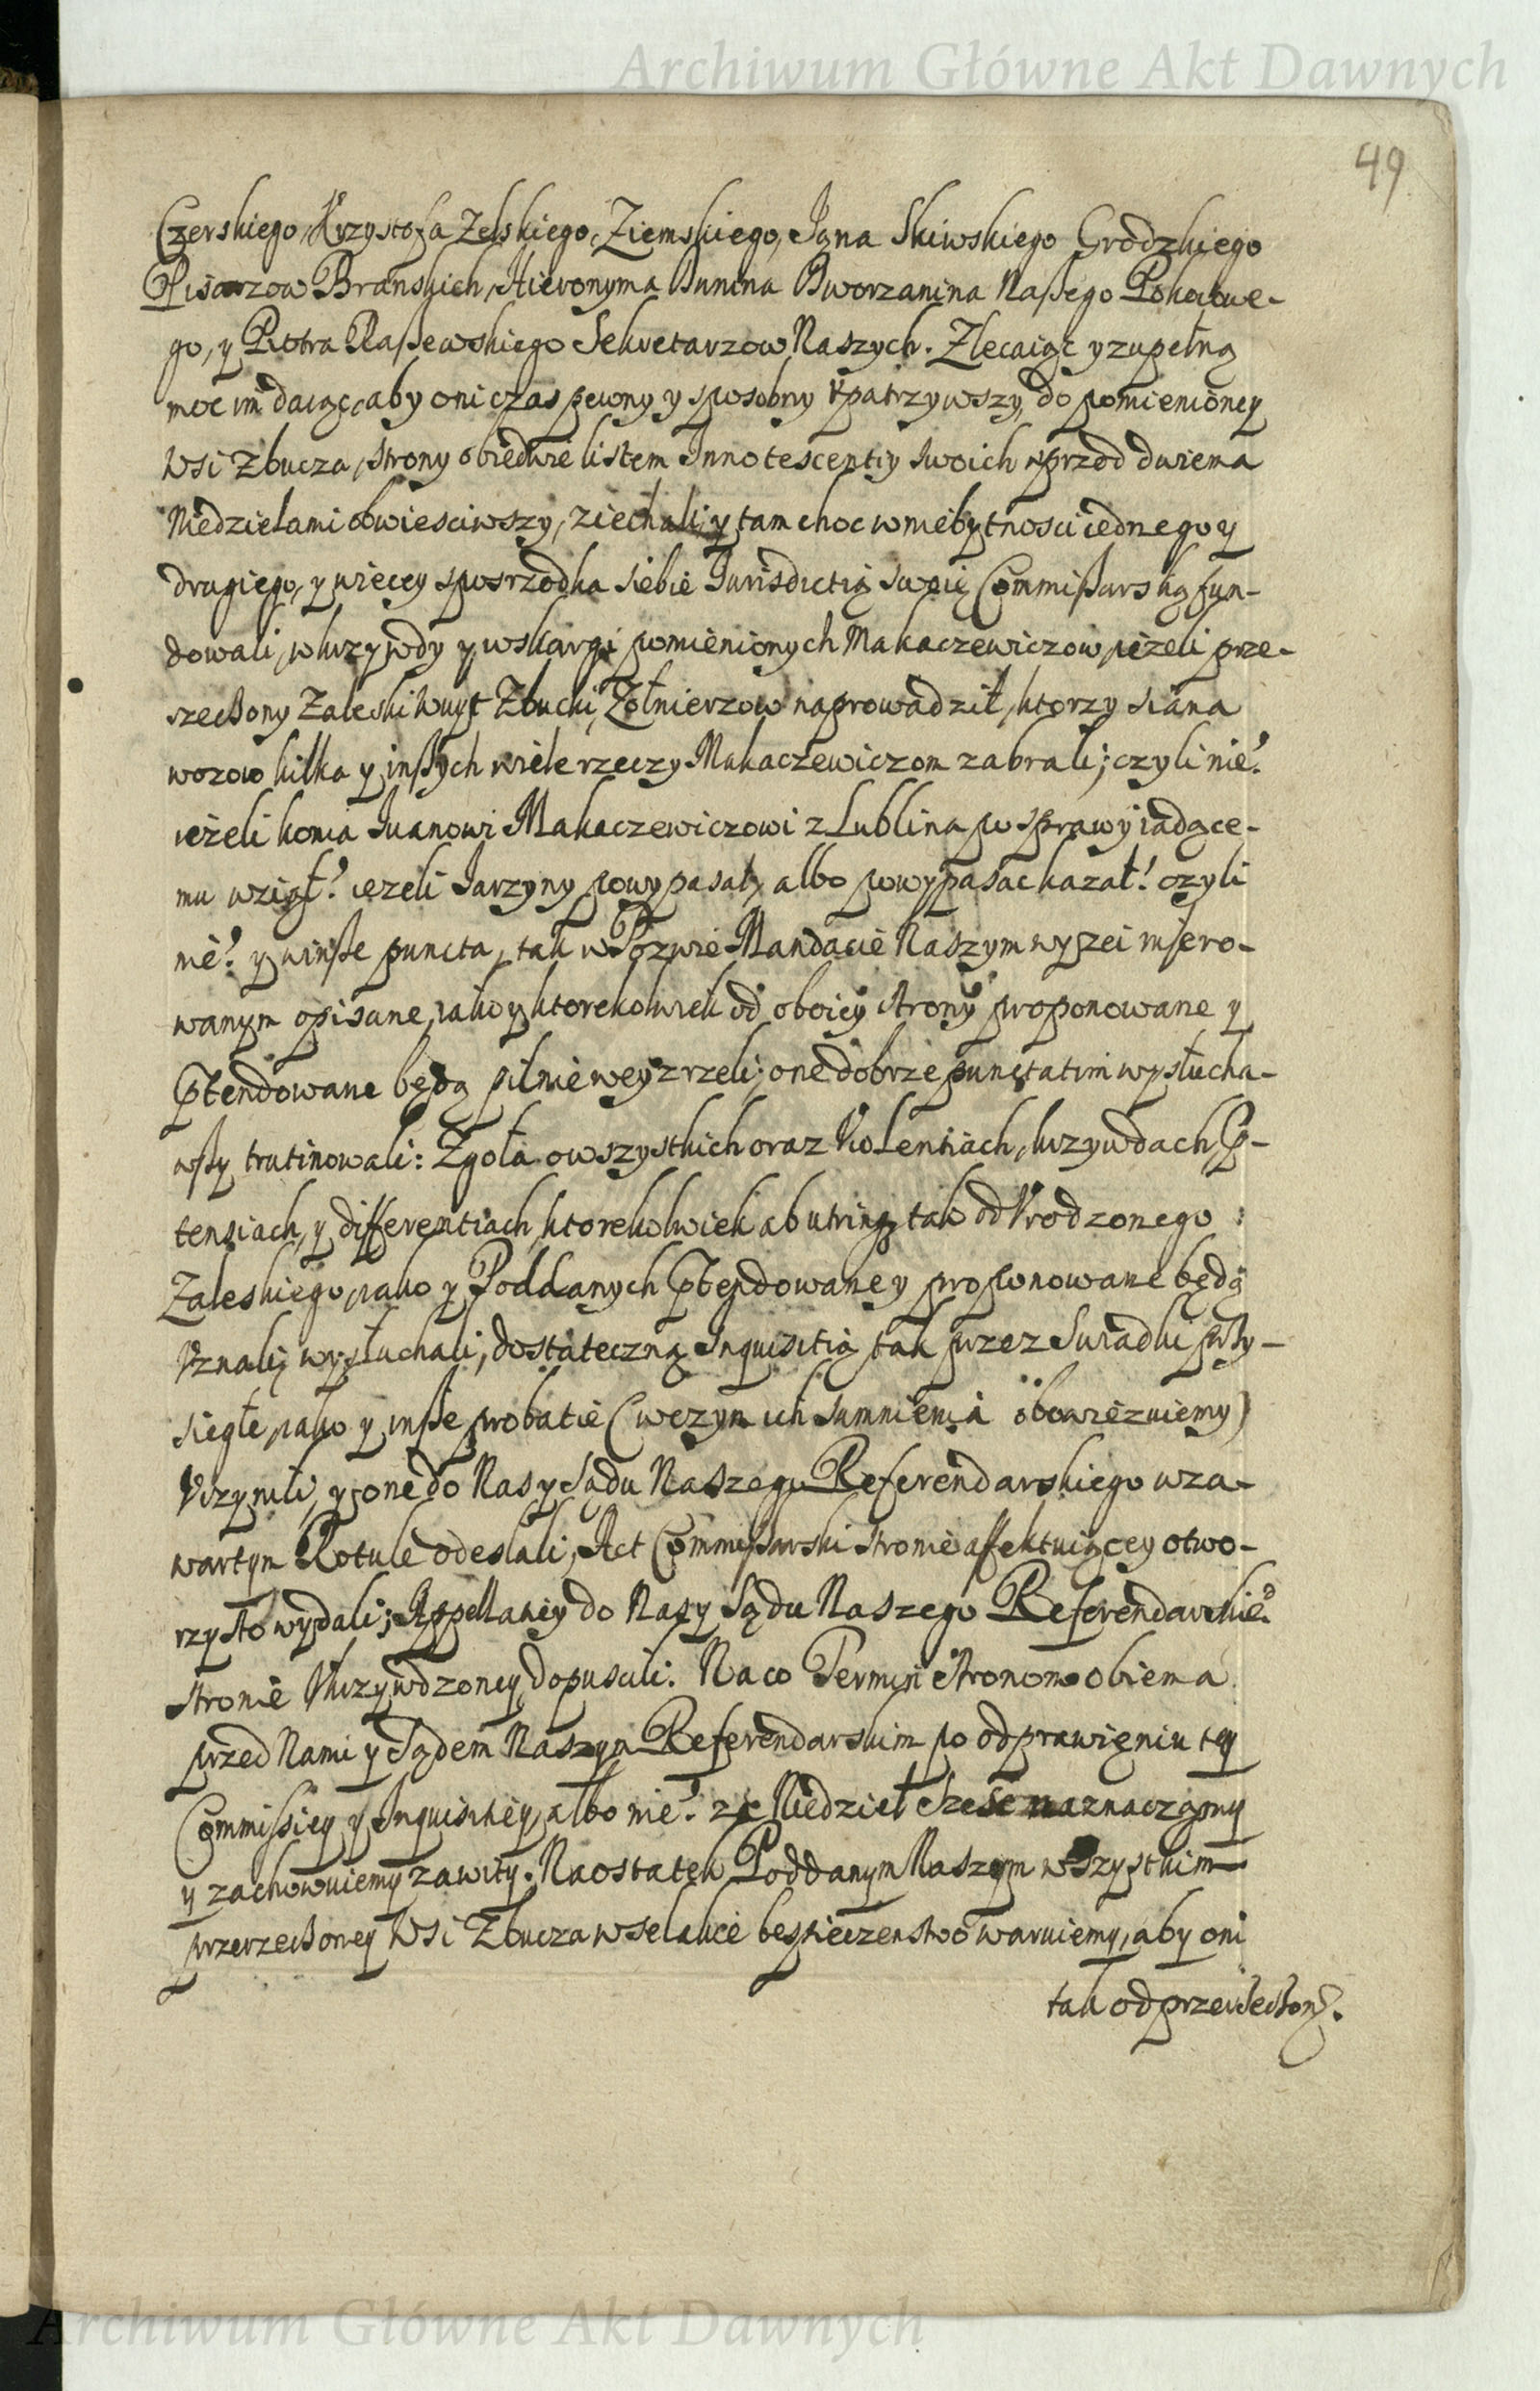 Archiwum Główne Akt Dawnych
49
Czerskiego, Krzysztofa Zelskiego, Ziemskiego, Jana Skiwskiego Grodzkiego
Pisarzow Branskich, Hieronyma Bunina Dworzanina Naßego Pokoiowe-
go, y Piotra Raßewskiego Sekretarzow Naszych. Zlecaiąc y zupełną
moc im daiąc, aby oni czas pewny y sposobny vpatrzywszy, do pomienioney
Wsi Zbucza, strony obiedwie listem Innotescentiy swoich wprzod dwiema
Niedzielami obwiesciwszy, ziechali, y tam choc w niebytnosci iednego y
drugiego, y więcey sposrzodka siebie Iurisdictią swoię Commißarską fun-
dowali, w krzywdy y w skargi pomienionych Makaczewiczow, ieżeli prze-
rzeczony Zaleski Wuyt Zbucki, Zołnierzow naprowadził, ktorzy siana
wozow kilka y inßych wiele rzeczy Makaczewiczom zabrali; czyli nie?
ieżeli konia Iwanowi Makaczewiczowi z Lublina po sprawy iadące-
mu wziął? ieżeli Jarzyny powypasał, albo powypasac kazał? czyli
nie? y w inße puncta, tak w Pozwie Mandacie Naszym wyżei insero-
wanym opisane, iako y ktorekolwiek od oboiey strony proponowane y
ptendowane będą pilnie weyzrzeli; one dobrze punctatim wysłucha-
wßy trutinowali: Zgoła o wszystkich oraz Violentiach, krzywdach, p-
tensiach, y differentiach, ktorekolwiek ab utrinq tak od Vrodzonego
Zaleskiego, iako y Poddanych ptendowane y proponowane będą
Vznali, wysłuchali, dostateczną Inquisitią tak przez Swiadki przy-
sięgłe, iako y inße probatie (w czym ich sumnienia obowięzuiemy)
Vczynili, y one do Nas y Sądu Naszego Referendarskiego w za-
wartym Rotule odesłali, Act Commißarski stronie affektuiącey otwo-
rzysto wydali; Appellaciey do Nas y Sądu Naszego Referendarskie?
stronie Vkrzywdzoney dopuscili. Na co Termin stronom obiema
przed Nami y Sądem Naszym Referendarskim po odprawieniu tey
Commissiey y Inquisitiey, albo nie? za Niedziel szesc naznaczony
y zachowuiemy zawity. Naostatek Poddanym Naszym wszystkim
przerzeczoney Wsi Zbucza wselakie bespieczenstwo waruiemy, aby oni
tak od przerzeczon.
Archiwum Główne Akt Dawnych